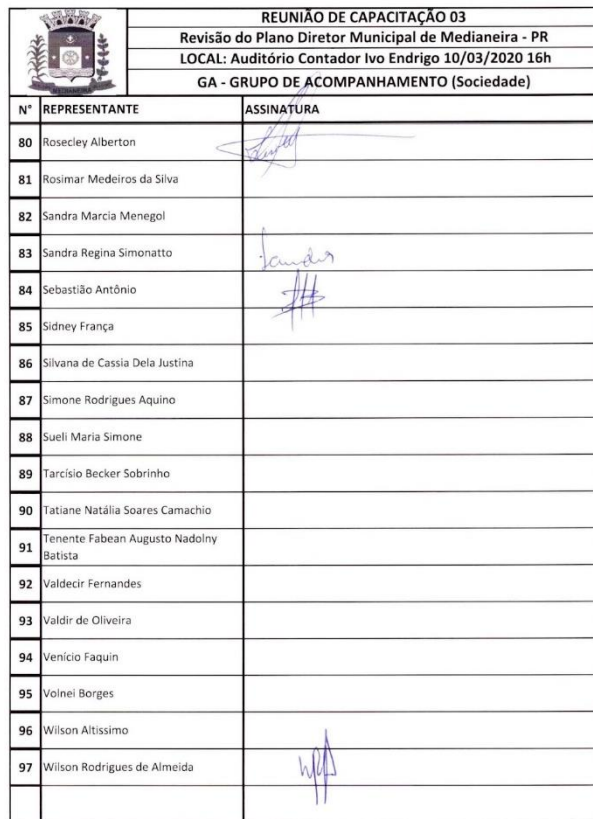 REUNIÃO DE CAPACITAÇÃO 03
Revisão do Plano Diretor Municipal de Medianeira - PR
LOCAL: Auditório Contador Ivo Endrigo 10/03/2020 16h
GA - GRUPO DE ACOMPANHAMENTO (Sociedade)
N° REPRESENTANTE ASSINATURA
80 Rosecley Alberton
81 Rosimar Medeiros da Silva
82 Sandra Marcia Menegol
83 Sandra Regina Simonatto Sandra
84 Sebastião Antônio
85 Sidney França
86 Silvana de Cassia Dela Justina
87 Simone Rodrigues Aquino
88 Sueli Maria Simone
89 Tarcísio Becker Sobrinho
90 Tatiane Natália Soares Camachio
91 Tenente Fabean Augusto Nadolny
Batista
92 Valdecir Fernandes
93 Valdir de Oliveira
94 Venício Faquin
95 Volnei Borges
96 Wilson Altissimo
97 Wilson Rodrigues de Almeida